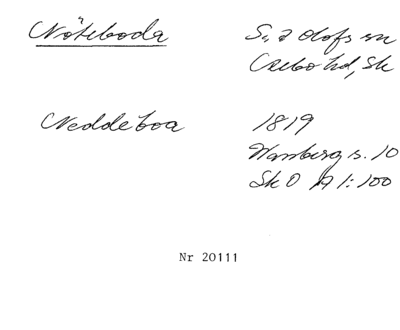 Nöteboda
S. Olofs sn
Crebo hd, Sk
Neddeboa
1819
Wamberg s. 10
Sk O A 1:100
Nr 20111